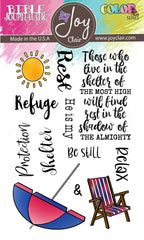 BIBLE
JOURNALING
Joy
Clair
COLOR
Made in the U.S.A
www.joyclair.com
Rest
Those who
live in the
shelter of
THE MOST HIGH
will find
rest in the
shadow of
THE ALMIGHTY
Refuge
He is my
Protection
Shelter
Be Still
Relax
&